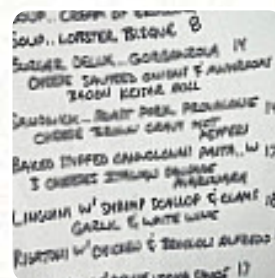 SOUP.. CREAM OF
SOUP.. LOBSTER BISQUE 8
BURGER DELUX.. GORGONZOLA 14
CHEESE SAUTEED ONIONS & MUSHROOMS
BACON KAISER ROLL
SANDWICH.. ROAST PORK, PROVOLONE
CHEESE BROWN GRAVY HOT
PEPPERS
BAKED STUFFED CANNOLONNI PASTA.. W 17
3 CHEESES ITALIAN SAUSAGE
MARINARA
LINGUINI W' SHRIMP SCALLOP & CLAMS 18
GARLIC & WHITE WINE
RIGATONI W' CHICKEN & BROCCOLI ALFREDO
17